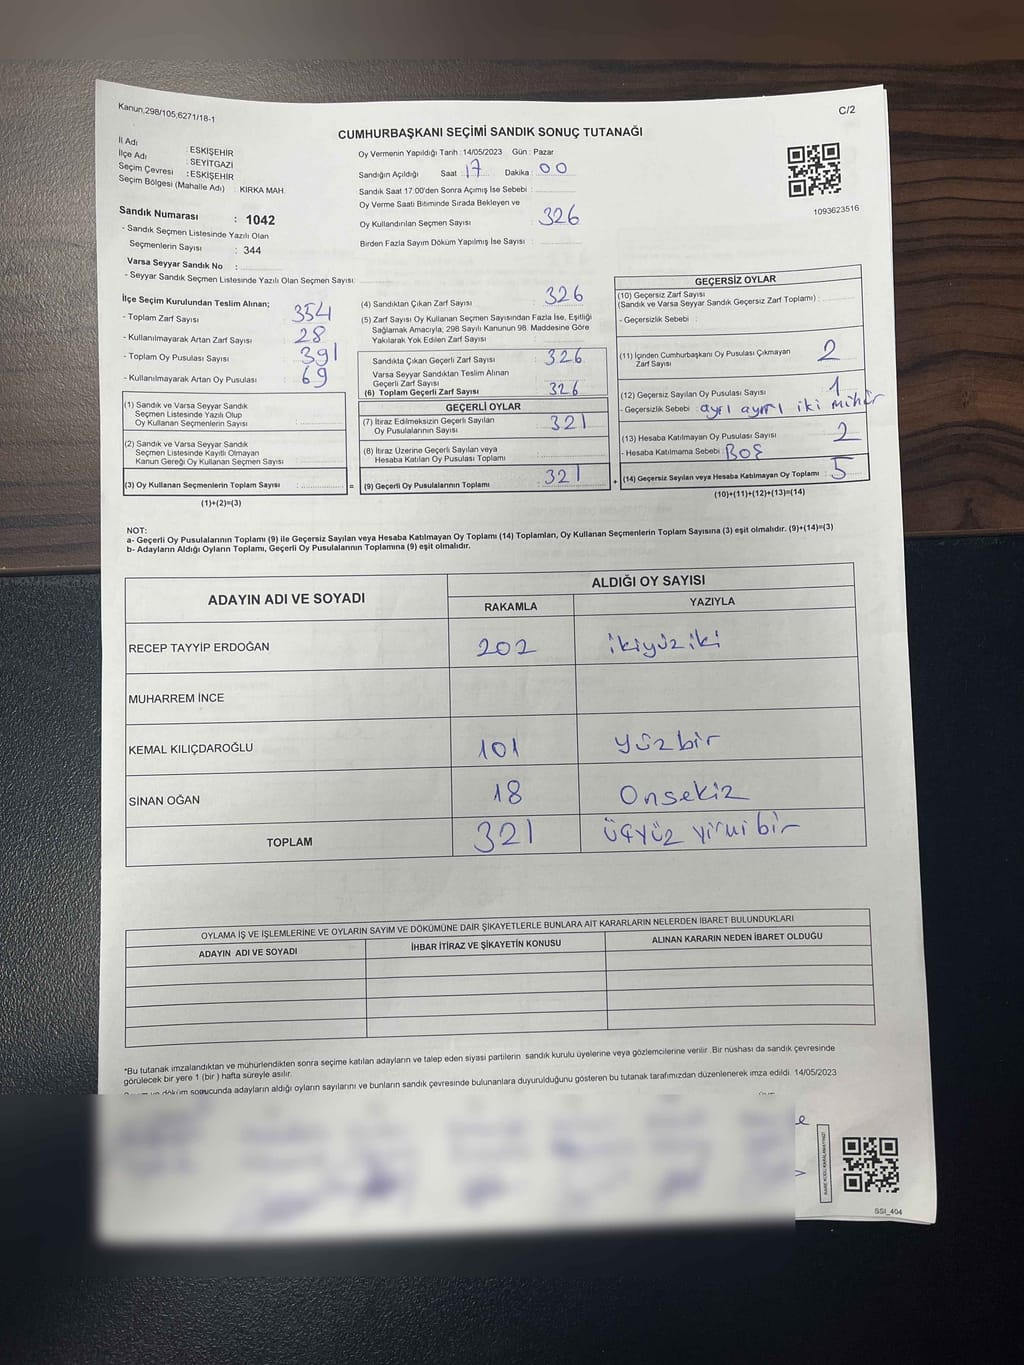 Kanun.298/105;6271/18-1
C/2
CUMHURBAŞKANI SEÇİMİ SANDIK SONUÇ TUTANAĞI
İl Adı : ESKİŞEHİR
İlçe Adı : SEYİTGAZİ
Seçim Çevresi : ESKİŞEHİR
Seçim Bölgesi (Mahalle Adı) : KIRKA MAH.
Sandık Numarası : 1042
- Sandık Seçmen Listesinde Yazılı Olan
Seçmenlerin Sayısı : 344
Varsa Seyyar Sandık No :
- Seyyar Sandık Seçmen Listesinde Yazılı Olan Seçmen Sayısı:
Oy Vermenin Yapıldığı Tarih :14/05/2023 Gün : Pazar
Sandığın Açıldığı Saat : 17 Dakika : 00
Sandık Saat 17:00'den Sonra Açımış İse Sebebi :
Oy Verme Saati Bitiminde Sırada Bekleyen ve
Oy Kullandırılan Seçmen Sayısı : 326
Birden Fazla Sayım Döküm Yapılmış İse Sayısı :
1093623516
İlçe Seçim Kurulundan Teslim Alınan;
- Toplam Zarf Sayısı : 354
- Kullanılmayarak Artan Zarf Sayısı : 28
- Toplam Oy Pusulası Sayısı : 391
- Kullanılmayarak Artan Oy Pusulası : 69
(1) Sandık ve Varsa Seyyar Sandık
Seçmen Listesinde Yazılı Olup
Oy Kullanan Seçmenlerin Sayısı :
(2) Sandık ve Varsa Seyyar Sandık
Seçmen Listesinde Kayıtlı Olmayan
Kanun Gereği Oy Kullanan Seçmen Sayısı :
(3) Oy Kullanan Seçmenlerin Toplam Sayısı :
(1)+(2)=(3)
(4) Sandıktan Çıkan Zarf Sayısı : 326
(5) Zarf Sayısı Oy Kullanan Seçmen Sayısından Fazla İse, Eşitliği
Sağlamak Amacıyla; 298 Sayılı Kanunun 98. Maddesine Göre
Yakılarak Yok Edilen Zarf Sayısı :
Sandıkta Çıkan Geçerli Zarf Sayısı : 326
Varsa Seyyar Sandıktan Teslim Alınan
Geçerli Zarf Sayısı :
(6) Toplam Geçerli Zarf Sayısı : 326
GEÇERLİ OYLAR
(7) İtiraz Edilmeksizin Geçerli Sayılan
Oy Pusulalarının Sayısı : 321
(8) İtiraz Üzerine Geçerli Sayılan veya
Hesaba Katılan Oy Pusulası Toplamı :
= (9) Geçerli Oy Pusulalarının Toplamı : 321
GEÇERSİZ OYLAR
(10) Geçersiz Zarf Sayısı
(Sandık ve Varsa Seyyar Sandık Geçersiz Zarf Toplamı) :
- Geçersizlik Sebebi :
(11) İçinden Cumhurbaşkanı Oy Pusulası Çıkmayan
Zarf Sayısı : 2
(12) Geçersiz Sayılan Oy Pusulası Sayısı : 1
- Geçersizlik Sebebi : ayrı ayrı iki mühür
(13) Hesaba Katılmayan Oy Pusulası Sayısı : 2
- Hesaba Katılmama Sebebi : BOŞ
+ (14) Geçersiz Sayılan veya Hesaba Katılmayan Oy Toplamı : 5
(10)+(11)+(12)+(13)=(14)
NOT:
a- Geçerli Oy Pusulalarının Toplamı (9) ile Geçersiz Sayılan veya Hesaba Katılmayan Oy Toplamı (14) Toplamları, Oy Kullanan Seçmenlerin Toplam Sayısına (3) eşit olmalıdır. (9)+(14)=(3)
b- Adayların Aldığı Oyların Toplamı, Geçerli Oy Pusulalarının Toplamına (9) eşit olmalıdır.
ADAYIN ADI VE SOYADI
ALDIĞI OY SAYISI
RAKAMLA YAZIYLA
RECEP TAYYİP ERDOĞAN 202 ikiyüziki
MUHARREM İNCE
KEMAL KILIÇDAROĞLU 101 yüzbir
SİNAN OĞAN 18 Onsekiz
TOPLAM 321 üçyüz yirmibir
OYLAMA İŞ VE İŞLEMLERİNE VE OYLARIN SAYIM VE DÖKÜMÜNE DAİR ŞİKAYETLERLE BUNLARA AİT KARARLARIN NELERDEN İBARET BULUNDUKLARI
ADAYIN ADI VE SOYADI İHBAR İTİRAZ VE ŞİKAYETİN KONUSU ALINAN KARARIN NEDEN İBARET OLDUĞU
*Bu tutanak imzalandıktan ve mühürlendikten sonra seçime katılan adayların ve talep eden siyasi partilerin sandık kurulu üyelerine veya gözlemcilerine verilir. Bir nüshası da sandık çevresinde
görülecek bir yere 1 (bir) hafta süreyle asılır.
döküm sonucunda adayların aldığı oyların sayılarını ve bunların sandık çevresinde bulunanlara duyurulduğunu gösteren bu tutanak tarafımızdan düzenlenerek imza edildi. 14/05/2023
SSI_404